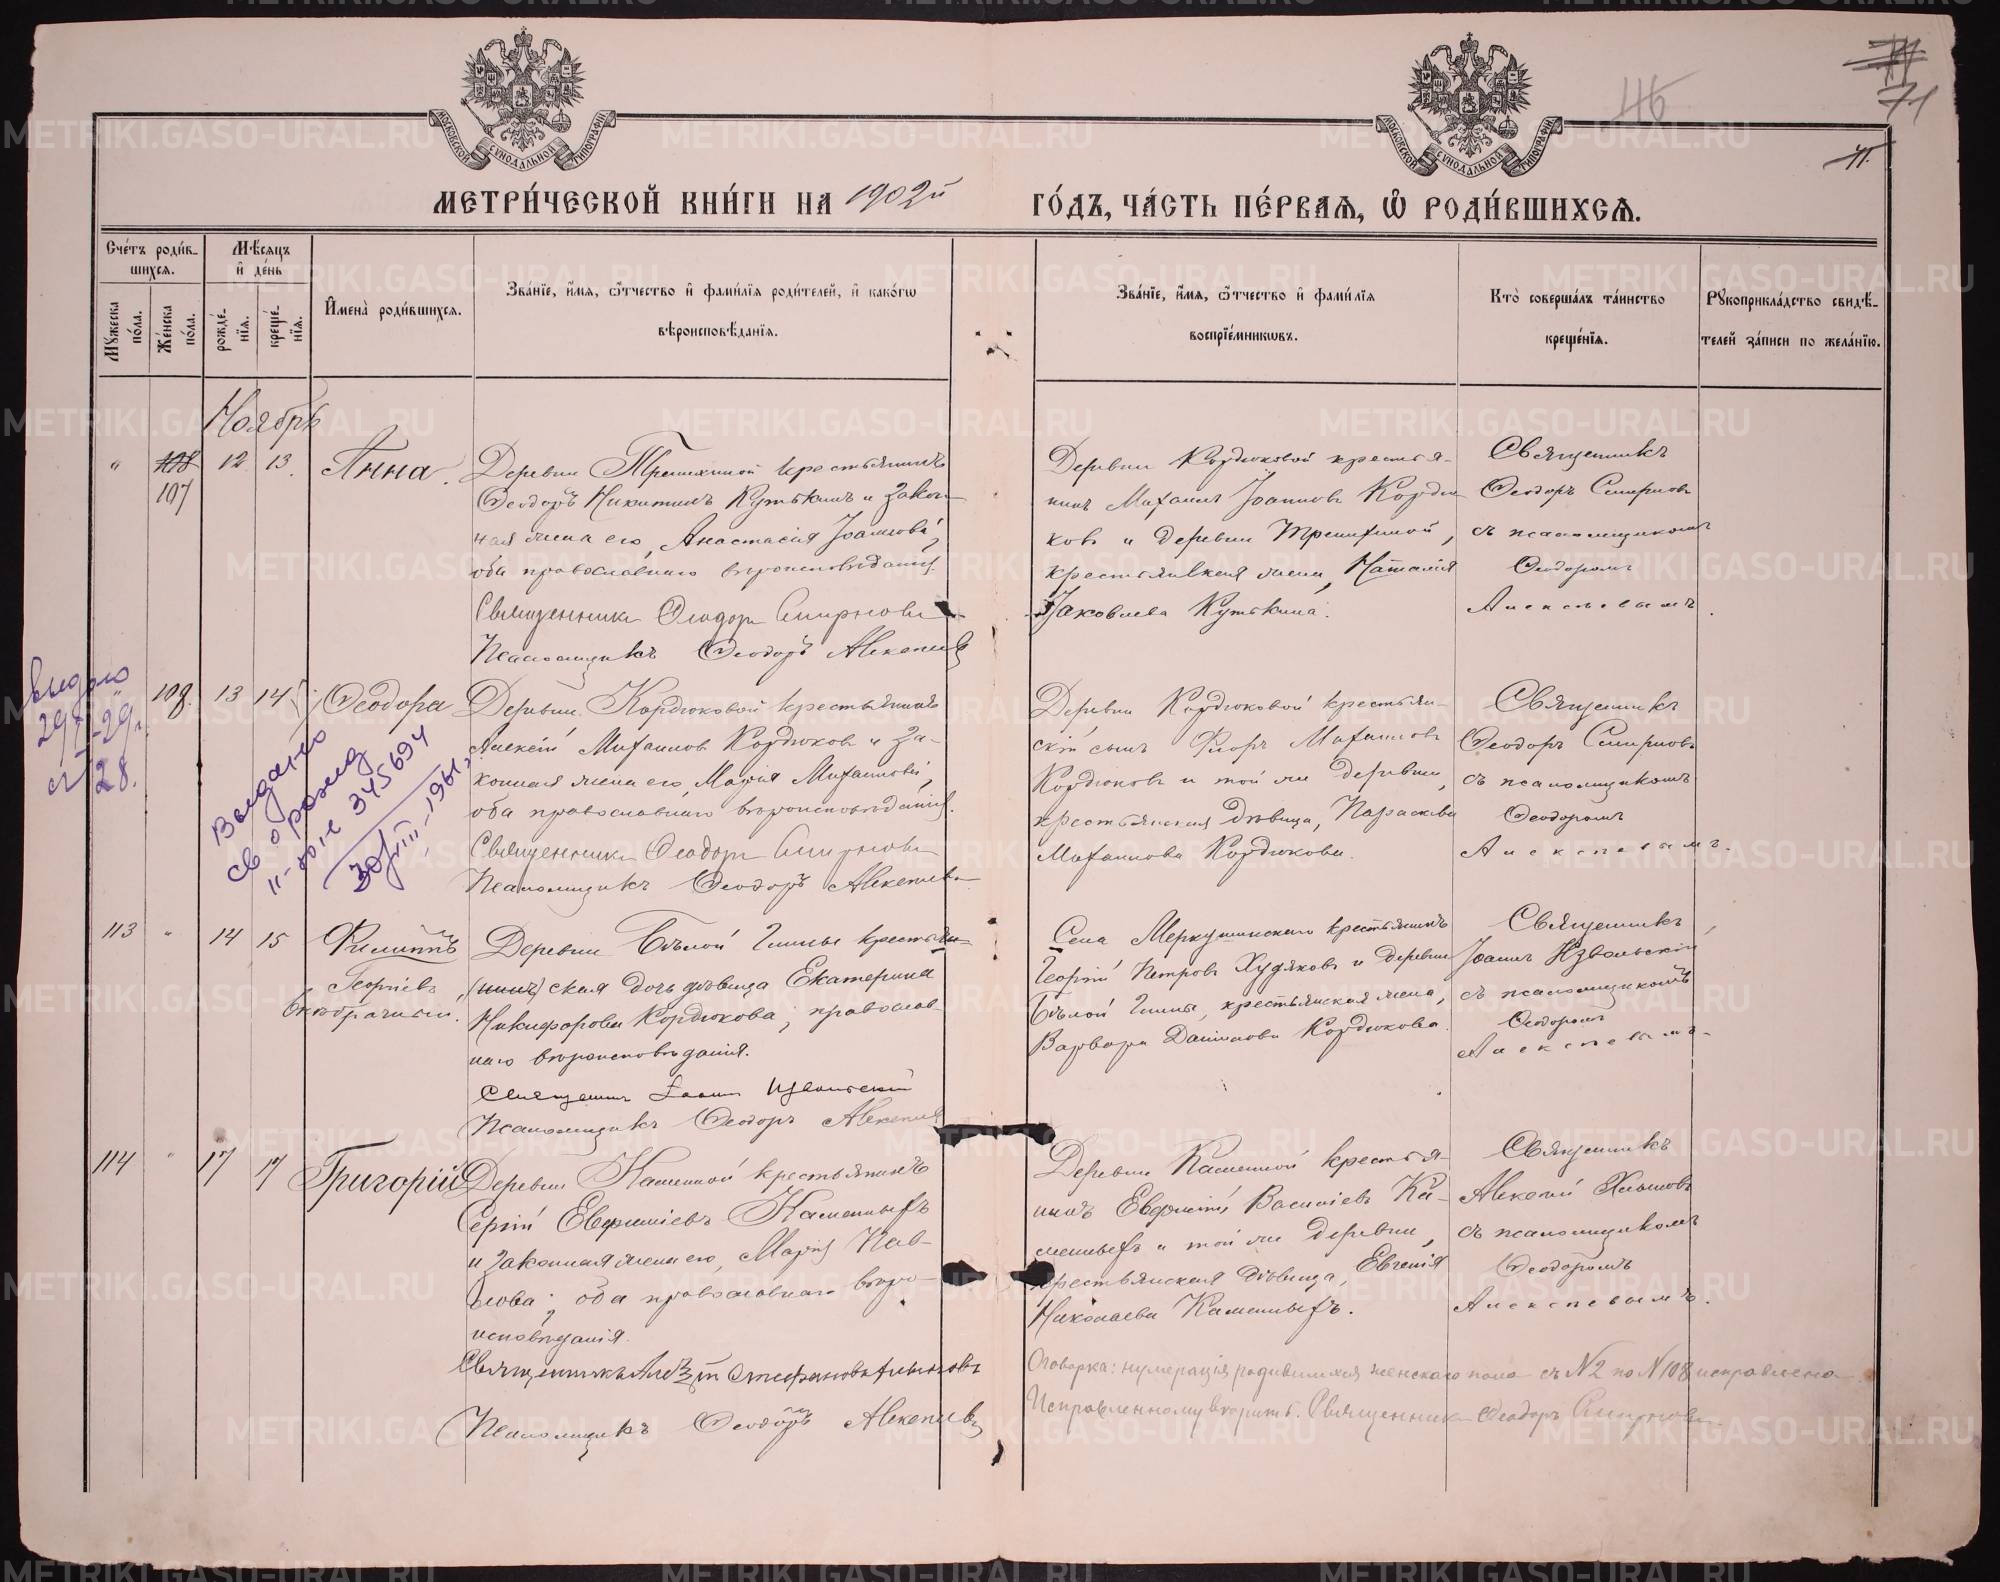 46
71
41.
МОСКОВСКОЙ СУНОДАЛЬНОЙ ТИПОГРАФІИ
МОСКОВСКОЙ СУНОДАЛЬНОЙ ТИПОГРАФІИ
МЕТРИ́ЧЕСКОЙ КНИ́ГИ НА 1902й ГО́ДЪ, ЧА́СТЬ ПЕ́РВАѦ, Ѡ҆ РОДИ́ВШИХСѦ.
Сче́тъ роди́в-
шихсѧ.
Мꙋжеска по́ла.
Же́нска по́ла.
Мѣ́сѧцъ
и҆ де́нь
рожде́-
нїѧ.
креще́-
нїѧ.
И҆мена̀ роди́вшихсѧ.
Зва́нїе, и҆́мѧ, ѻ҆́тчество и҆ фами́лїѧ роди́телей, и҆ како́гѡ
вѣроисповѣ́данїѧ.
Зва́нїе, и҆́мѧ, ѻ҆́тчество и҆ фами́лїѧ
воспрїе́мникѡвъ.
Кто̀ соверша́лъ та́инство
креще́нїѧ.
Рꙋкоприкла́дство свидѣ́-
телей за́писи по жела́нїю.
Ноябрь
" 108 12 13 Анна.
107
Деревни Трешихиной крестьянинъ
Ѳеодоръ Никитинъ Кутькинъ и закон-
ная жена его, Анастасія Іоаннова,
оба православнаго вѣроисповѣданія.
Священникъ Ѳеодоръ Смирновъ
Псаломщикъ Ѳеодоръ Алексѣевъ
Деревни Кордюковой крестья-
нинъ Михаилъ Іоанновъ Кордю-
ковъ и деревни Трешихиной,
крестьянская жена, Наталія
Іаковлева Кутькина.
Священникъ
Ѳеодоръ Смирновъ
съ псаломщикомъ
Ѳеодоромъ
Алексѣевымъ.
" 108. 13 14 Ѳеодора
Деревни Кордюковой крестьянинъ
Алексій Михаиловъ Кордюковъ и за-
конная жена его, Марія Михаилова,
оба православнаго вѣроисповѣданія.
Священникъ Ѳеодоръ Смирновъ
Псаломщикъ Ѳеодоръ Алексѣевъ
Деревни Кордюковой крестьян-
скій сынъ Флоръ Михаиловъ
Кордюковъ и той же деревни,
крестьянская дѣвица, Параскева
Михаилова Кордюкова.
Священникъ
Ѳеодоръ Смирновъ
съ псаломщикомъ
Ѳеодоромъ
Алексѣевымъ.
Выдано
Выдано
св о рожд
II-ЮЛ № 345694
30/VIII-1961г.
113 " 14 15 Филиппъ
Георгіевъ,
внѣбрачный.
Деревни Бѣлой Глины крестьян-
(нинъ) ская дочь дѣвица Екатерина
Никифорова Кордюкова, православ-
наго вѣроисповѣданія.
Священникъ Іоаннъ Извольскій
Псаломщикъ Ѳеодоръ Алексѣевъ
Села Меркушинскаго крестьянинъ
Георгій Петровъ Худяковъ и деревни
Бѣлой Глины, крестьянская жена,
Варвара Даніилова Кордюкова.
Священникъ
Іоаннъ Извольскій
съ псаломщикомъ
Ѳеодоромъ
Алексѣевымъ.
114 " 17 17 Григорій
Деревни Каменной крестьянинъ
Сергій Евфиміевъ Каменныхъ
и законная жена его, Марія Пав-
лова; оба православнаго вѣро-
исповѣданія.
Псаломщикъ Ѳеодоръ Алексѣевъ
Деревни Каменной крестья-
нинъ Евфимій Василіевъ Ка-
менныхъ и той же деревни,
крестьянская дѣвица, Евгенія
Николаева Каменныхъ.
Священникъ
Алексій Хлыновъ
съ псаломщикомъ
Ѳеодоромъ
Алексѣевымъ.
Оговорка: нумерація родившихся женскаго пола съ №2 по №108 исправлена.
Исправленному вѣрить. Священникъ Ѳеодоръ Смирновъ
METRIKI.GASO-URAL.RU